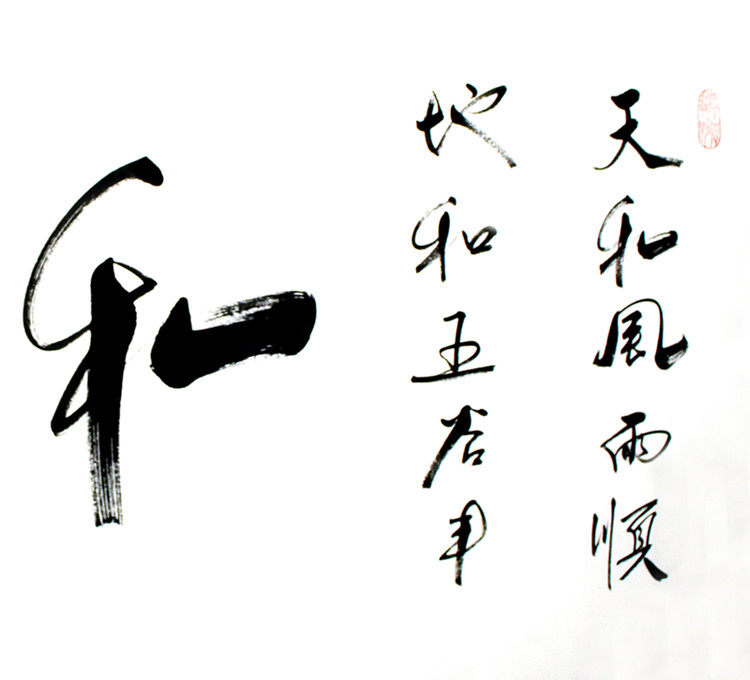 天和風雨順
地和五谷丰
和